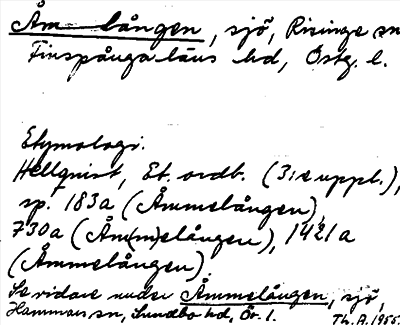 Åm-lången, sjö, Risinge sn
Finspånga läns hd, Östg. l.
Etymologi.
Hellquist, Et. ordb. (3:e uppl.),
sp. 183a (Åmmelången),
730a (Åm(m)elången), 1421a
(Åmmelången).
Se vidare under Åmmelången, sjö,
Hammars sn, Sundbo hd, Ör. l.
Th. A. 1955